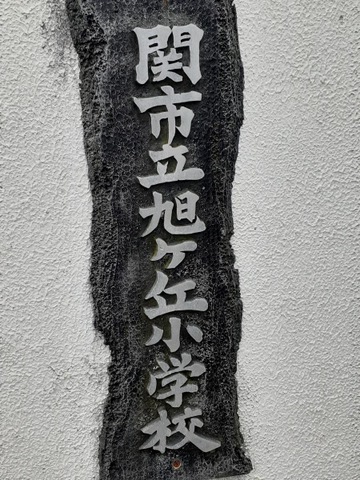 関市立旭ケ丘小学校